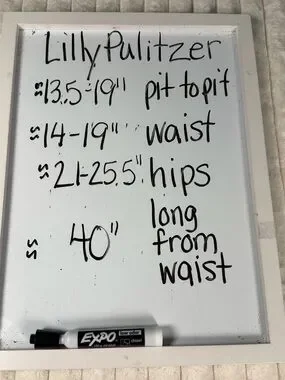 Lilly Pulitzer
≈13.5-19" pit to pit
≈14-19" waist
≈21-25.5" hips
≈ 40" long
from
waist
EXPO